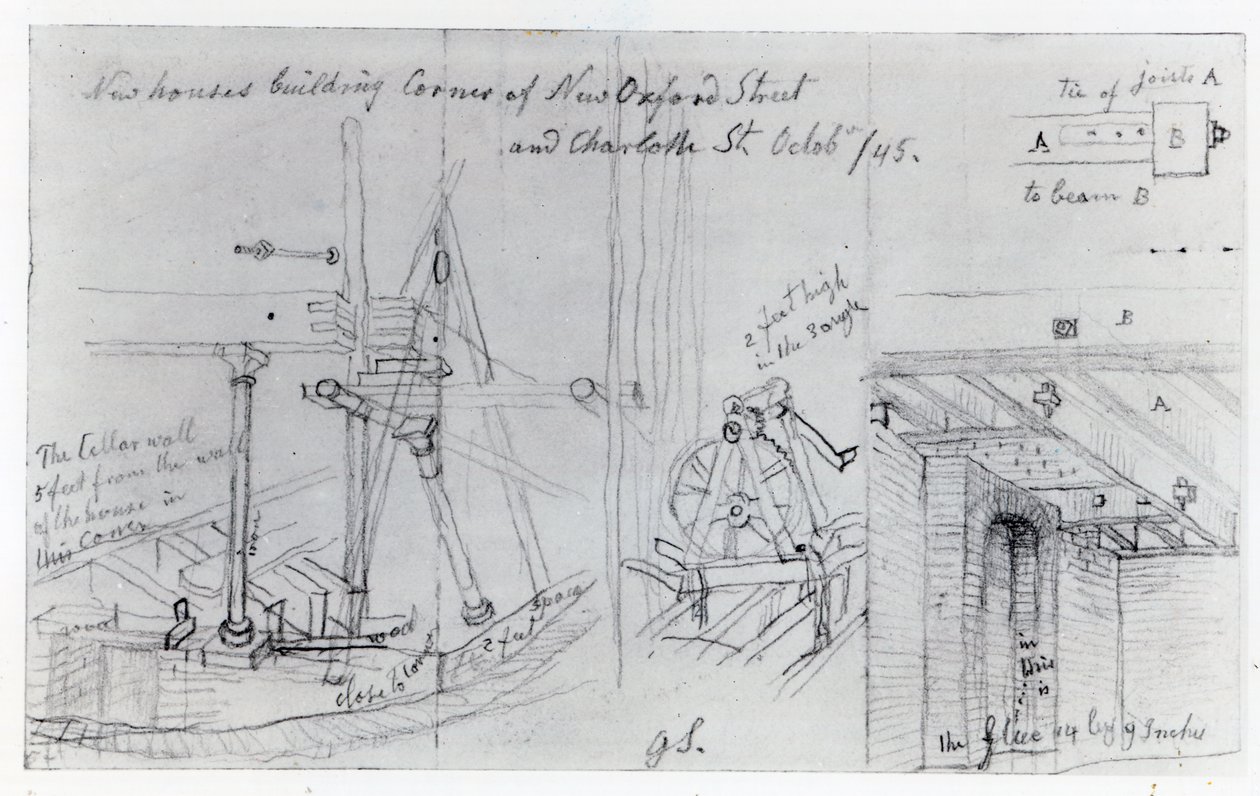 New houses building Corner of New Oxford Street
and Charlotte St. Octobr /45.
tie of joists A
A
B
to beam B
2 feet high
in the 3 angle
B
A
The Cellar wall
5 feet from the wall
of the house in
this Corner
iron
wood
wood
close to corner
2 feet space
in
this
is
the flue 14 by 9 Inches
G S.